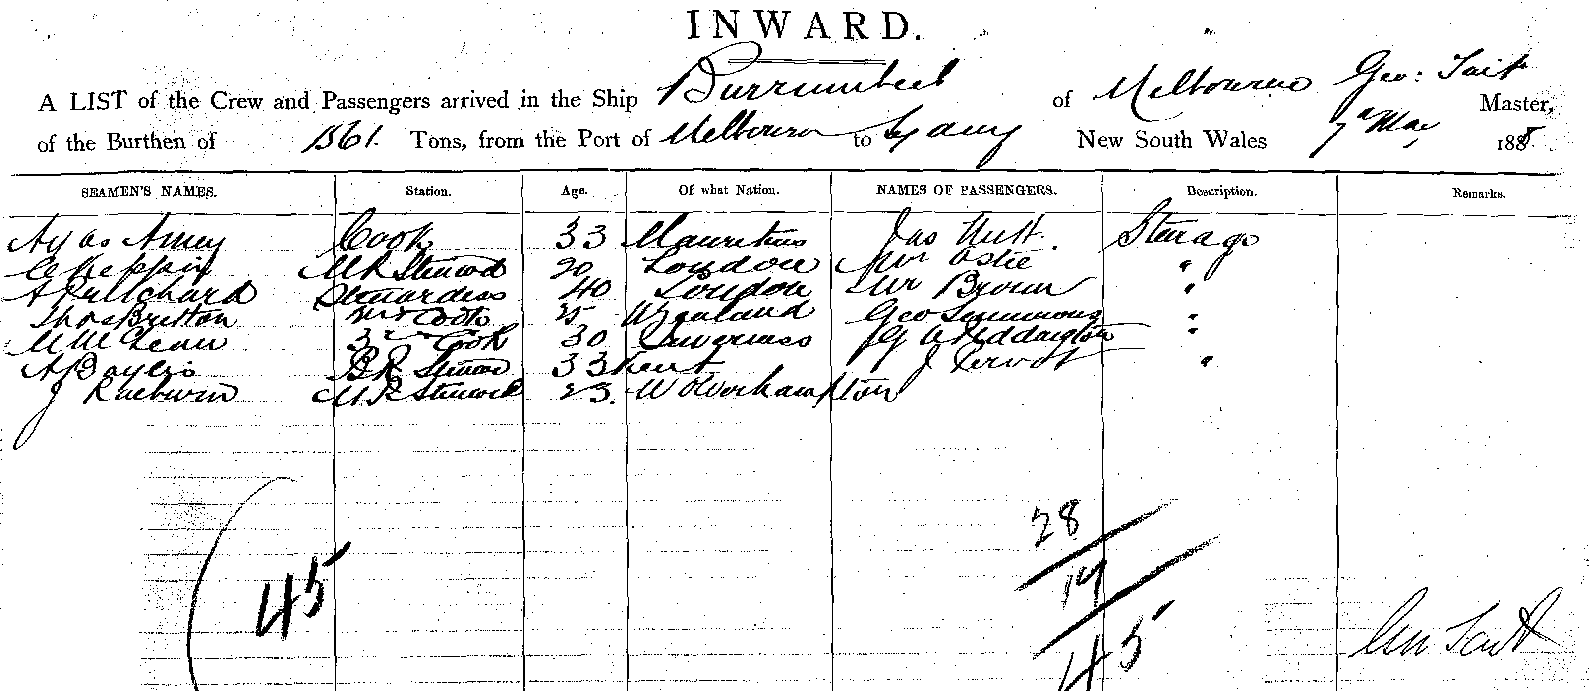 INWARD.
A LIST of the Crew and Passengers arrived in the Ship Burrumbeet of Melbourne Geo: Tait Master,
of the Burthen of Tons, from the Port of Melbourne to Sydney New South Wales 7th May 188
SEAMEN'S NAMES. Station. Age. Of what Nation. NAMES OF PASSENGERS. Description. Remarks.
Cook 33 Mauritius Jas Nutt. Steerage
Steward 20 London Mr "
A Pritchard Stewardess 40 London Mr Brown "
Thos Britton 2nd Cook 25 Geo Simmons "
3rd Cook 30 Inverness "
A Baylis B R Steward 33 Kent J "
J Steward 23. Wolverhampton
28
17
45 45
Geo Tait